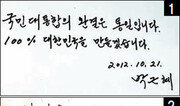 1
국민대통합의 완결은 통일입니다.
100% 대한민국을 만들겠습니다.
2012. 10. 21.
박근혜
2